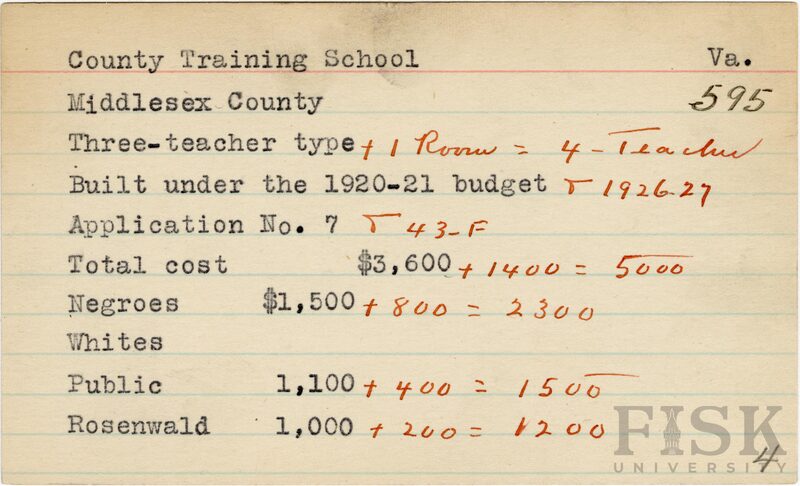 County Training School Va.
Middlesex County 595
Three-teacher type + 1 Room = 4-Teacher
Built under the 1920-21 budget + 1926-27
Application No. 7 + 43-F
Total cost $3,600 + 1400 = 5000
Negroes $1,500 + 800 = 2300
Whites
Public 1,100 + 400 = 1500
Rosenwald 1,000 + 200 = 1200
FISK
UNIVERSITY
4